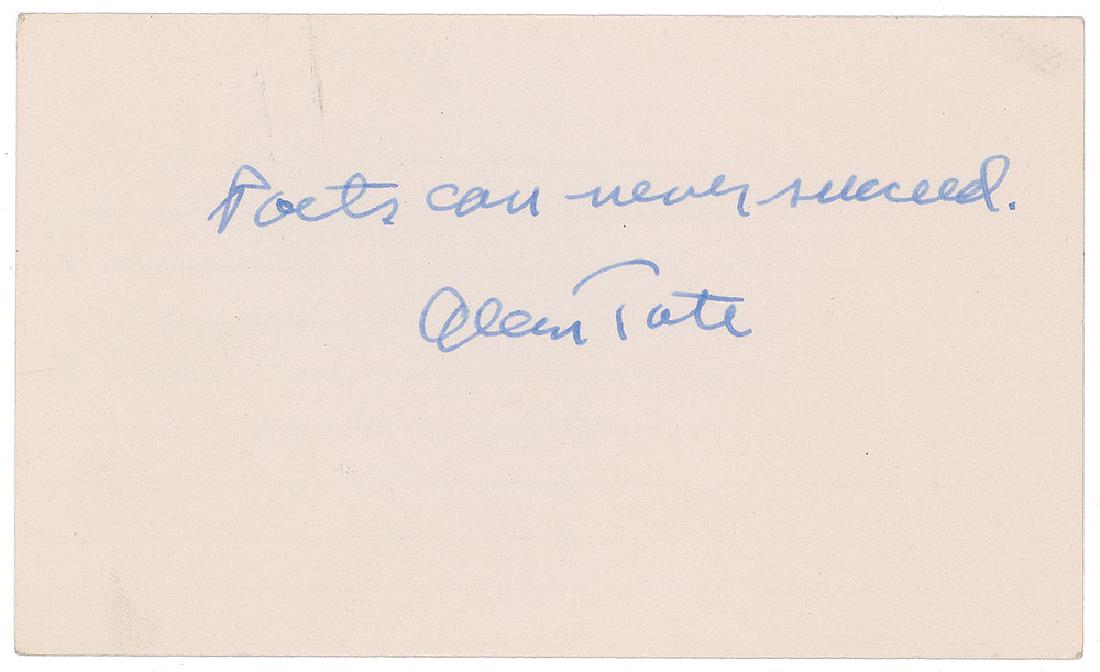 Poets can never succeed.
Allen Tate